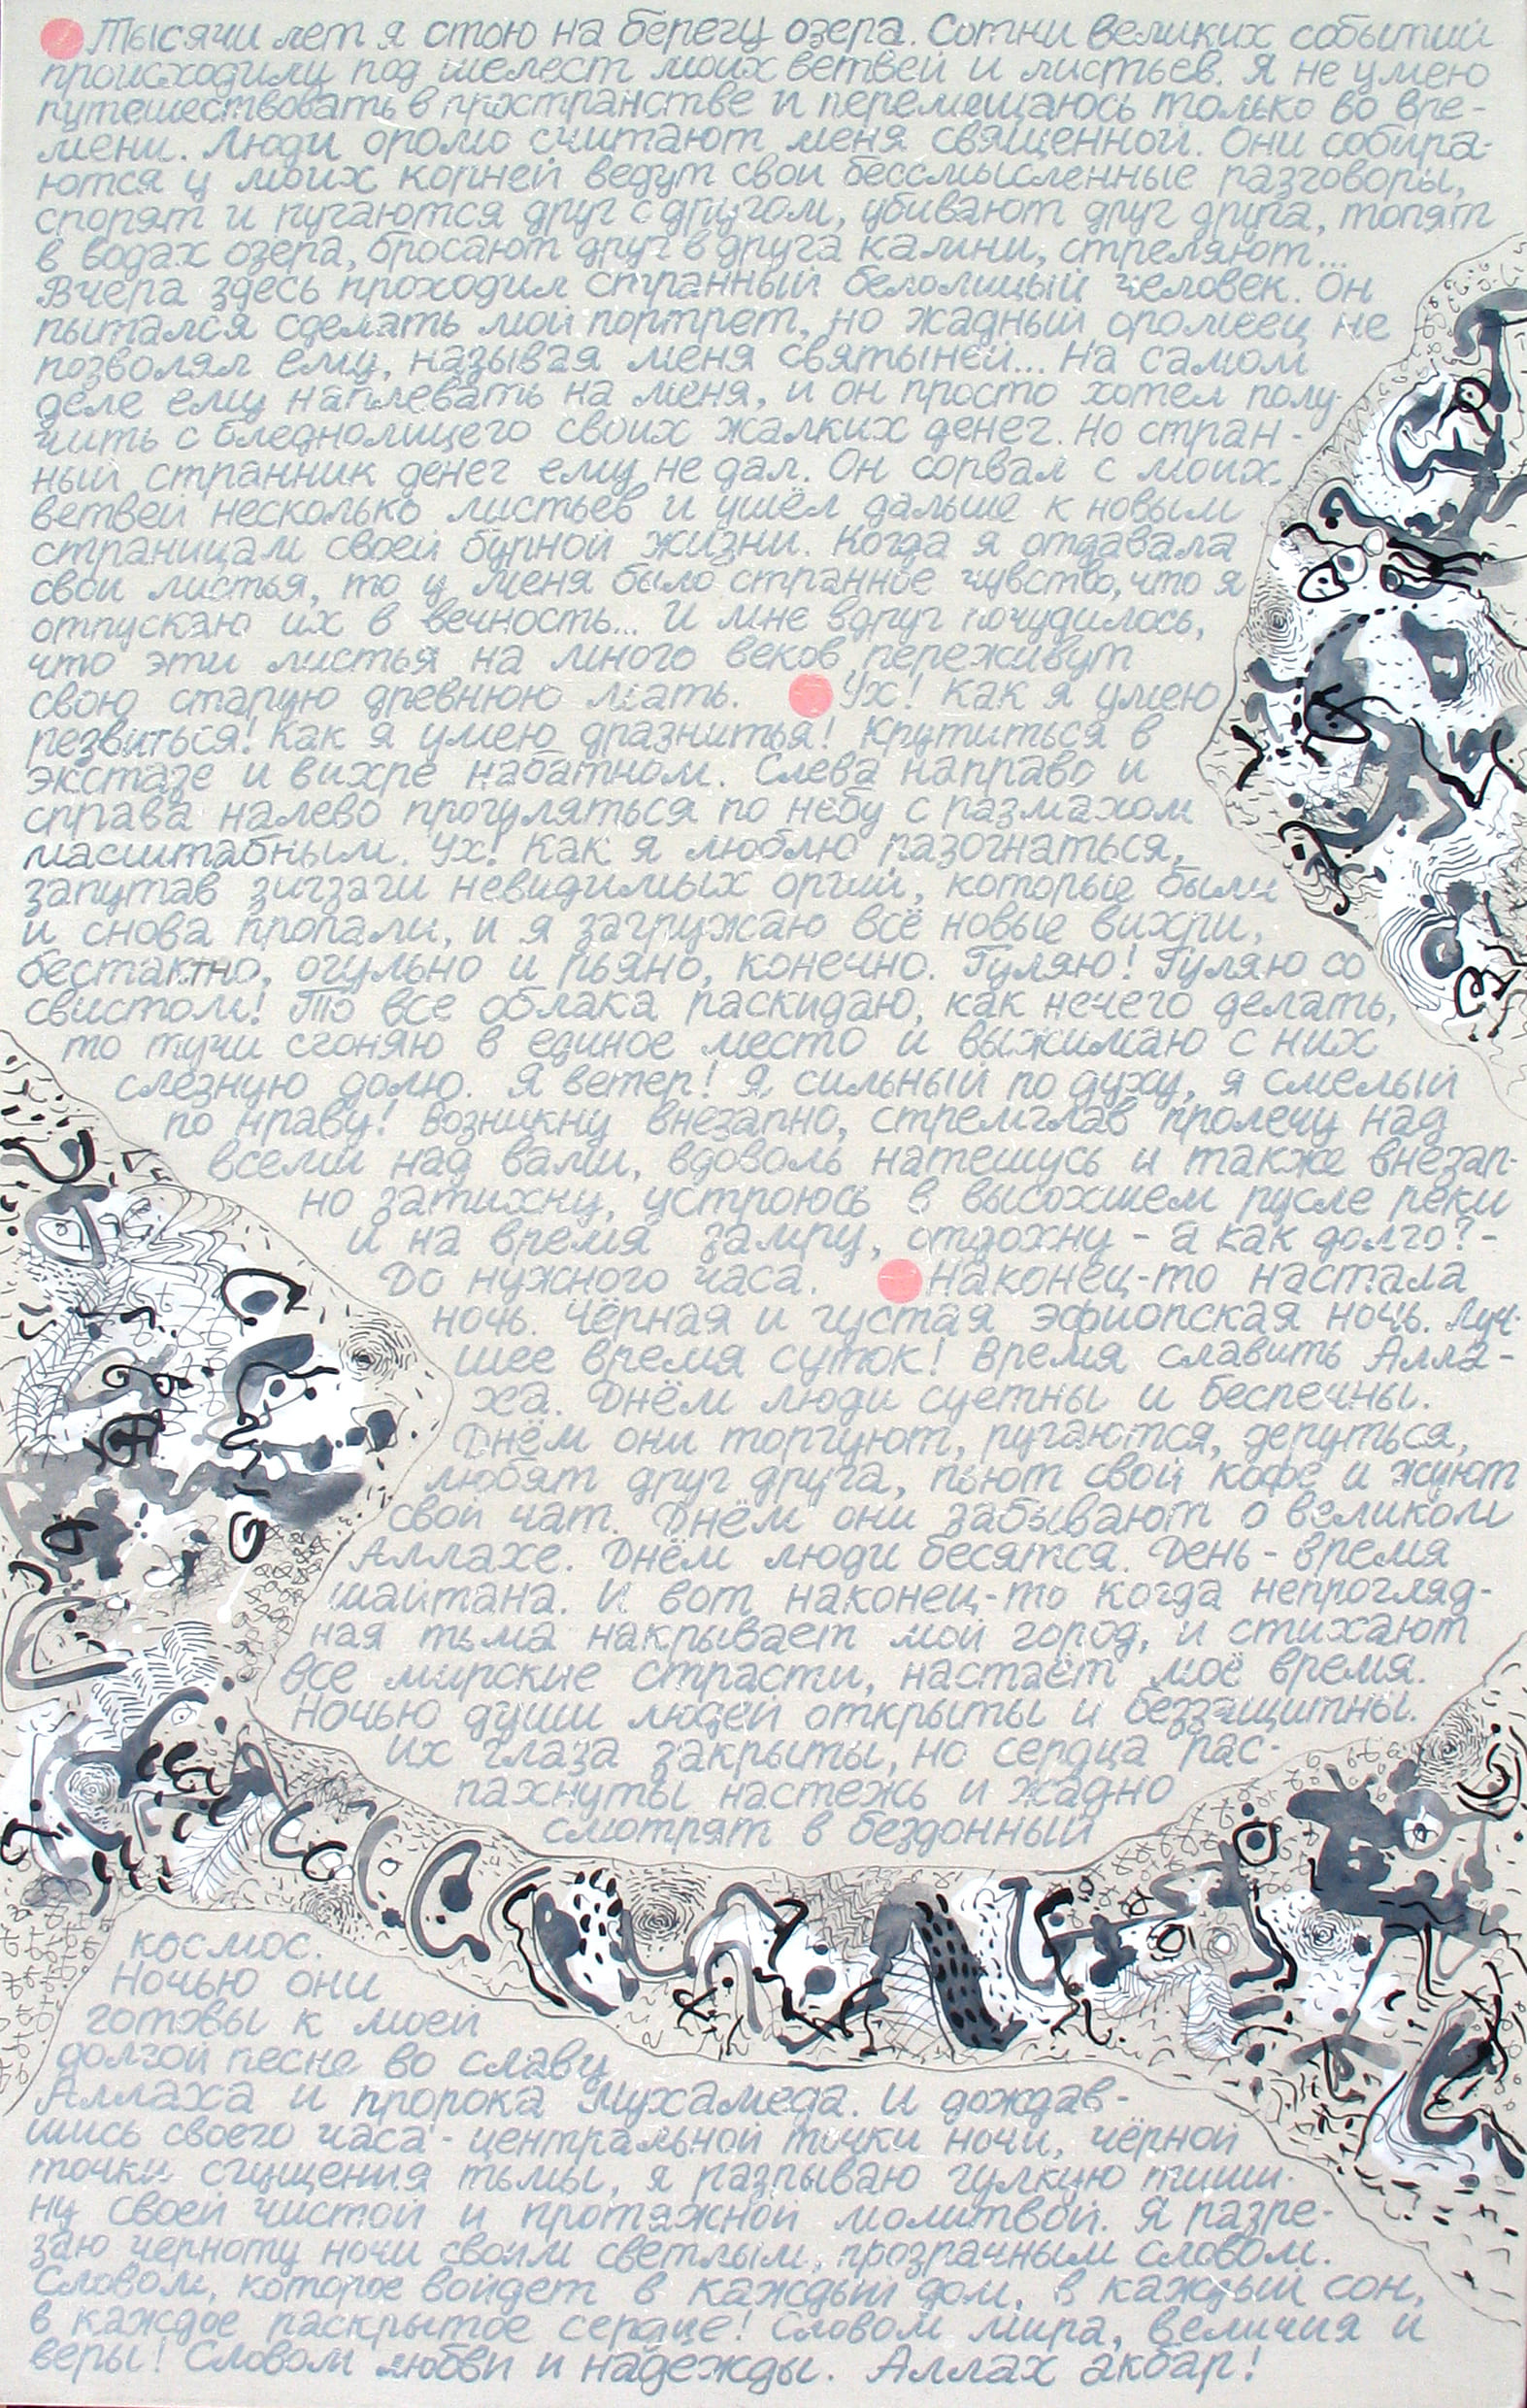 Тысячи лет я стою на берегу озера. Сотни великих событий
происходили под шелест моих ветвей и листьев. Я не умею
путешествовать в пространстве и перемещаюсь только во вре-
мени. Люди оромо считают меня священной. Они собира-
ются у моих корней ведут свои бессмысленные разговоры,
спорят и ругаются друг с другом, убивают друг друга, топят
в водах озера, бросают друг в друга камни, стреляют...
Вчера здесь проходил странный белолицый человек. Он
пытался сделать мой портрет, но жадный оромеец не
позволял ему, называя меня святыней... На самом
деле ему наплевать на меня, и он просто хотел полу-
чить с бледнолицего своих жалких денег. Но стран-
ный странник денег ему не дал. Он сорвал с моих
ветвей несколько листьев и ушёл дальше к новым
страницам своей бурной жизни. Когда я отдавала
свои листья, то у меня было странное чувство, что я
отпускаю их в вечность... И мне вдруг почудилось,
что эти листья на много веков переживут
свою старую древнюю мать. Ух! Как я умею
резвиться! Как я умею дразниться! Крутиться в
экстазе и вихре набатном. Слева направо и
справа налево прогуляться по небу с размахом
масштабным. Ух! Как я люблю разогнаться,
запутав зигзаги невидимых оргий, которые были
и снова пропали, и я загружаю всё новые вихри,
бестактно, огульно и рьяно, конечно. Гуляю! Гуляю со
свистом! То все облака раскидаю, как нечего делать,
то тучи сгоняю в единое место и выжимаю с них
слезную долю. Я ветер! Я сильный по духу, я смелый
по нраву! Возникну внезапно, стремглав пролечу над
всеми над вами, вдоволь натешусь и также внезап-
но затихну, устроюсь в высохшем русле реки
и на время замру, отдохну - а как долго? -
До нужного часа. Наконец-то настала
ночь. Чёрная и густая эфиопская ночь. Луч-
шее время суток! Время славить Алла-
ха. Днём люди суетны и беспечны.
Днём они торгуют, ругаются, деруться,
любят друг друга, пьют свой кофе и жуют
свой чат. Днём они забывают о великом
Аллахе. Днём люди бесятся. День - время
шайтана. И вот наконец-то когда непрогляд-
ная тьма накрывает мой город, и стихают
все мирские страсти, настаёт моё время.
Ночью души людей открыты и беззащитны.
Их глаза закрыты, но сердца рас-
пахнуты настежь и жадно
смотрят в бездонный
космос.
Ночью они
готовы к моей
долгой песне во славу
Аллаха и пророка Мухамеда. И дождав-
шись своего часа - центральной точки ночи, чёрной
точки сгущения тьмы, я разрываю гулкую тиши-
ну своей чистой и протяжной молитвой. Я разре-
заю черноту ночи своим светлым, прозрачным словом.
Словом, которое войдет в каждый дом, в каждый сон,
в каждое раскрытое сердце! Словом мира, величия и
веры! Словом любви и надежды. Аллах акбар!